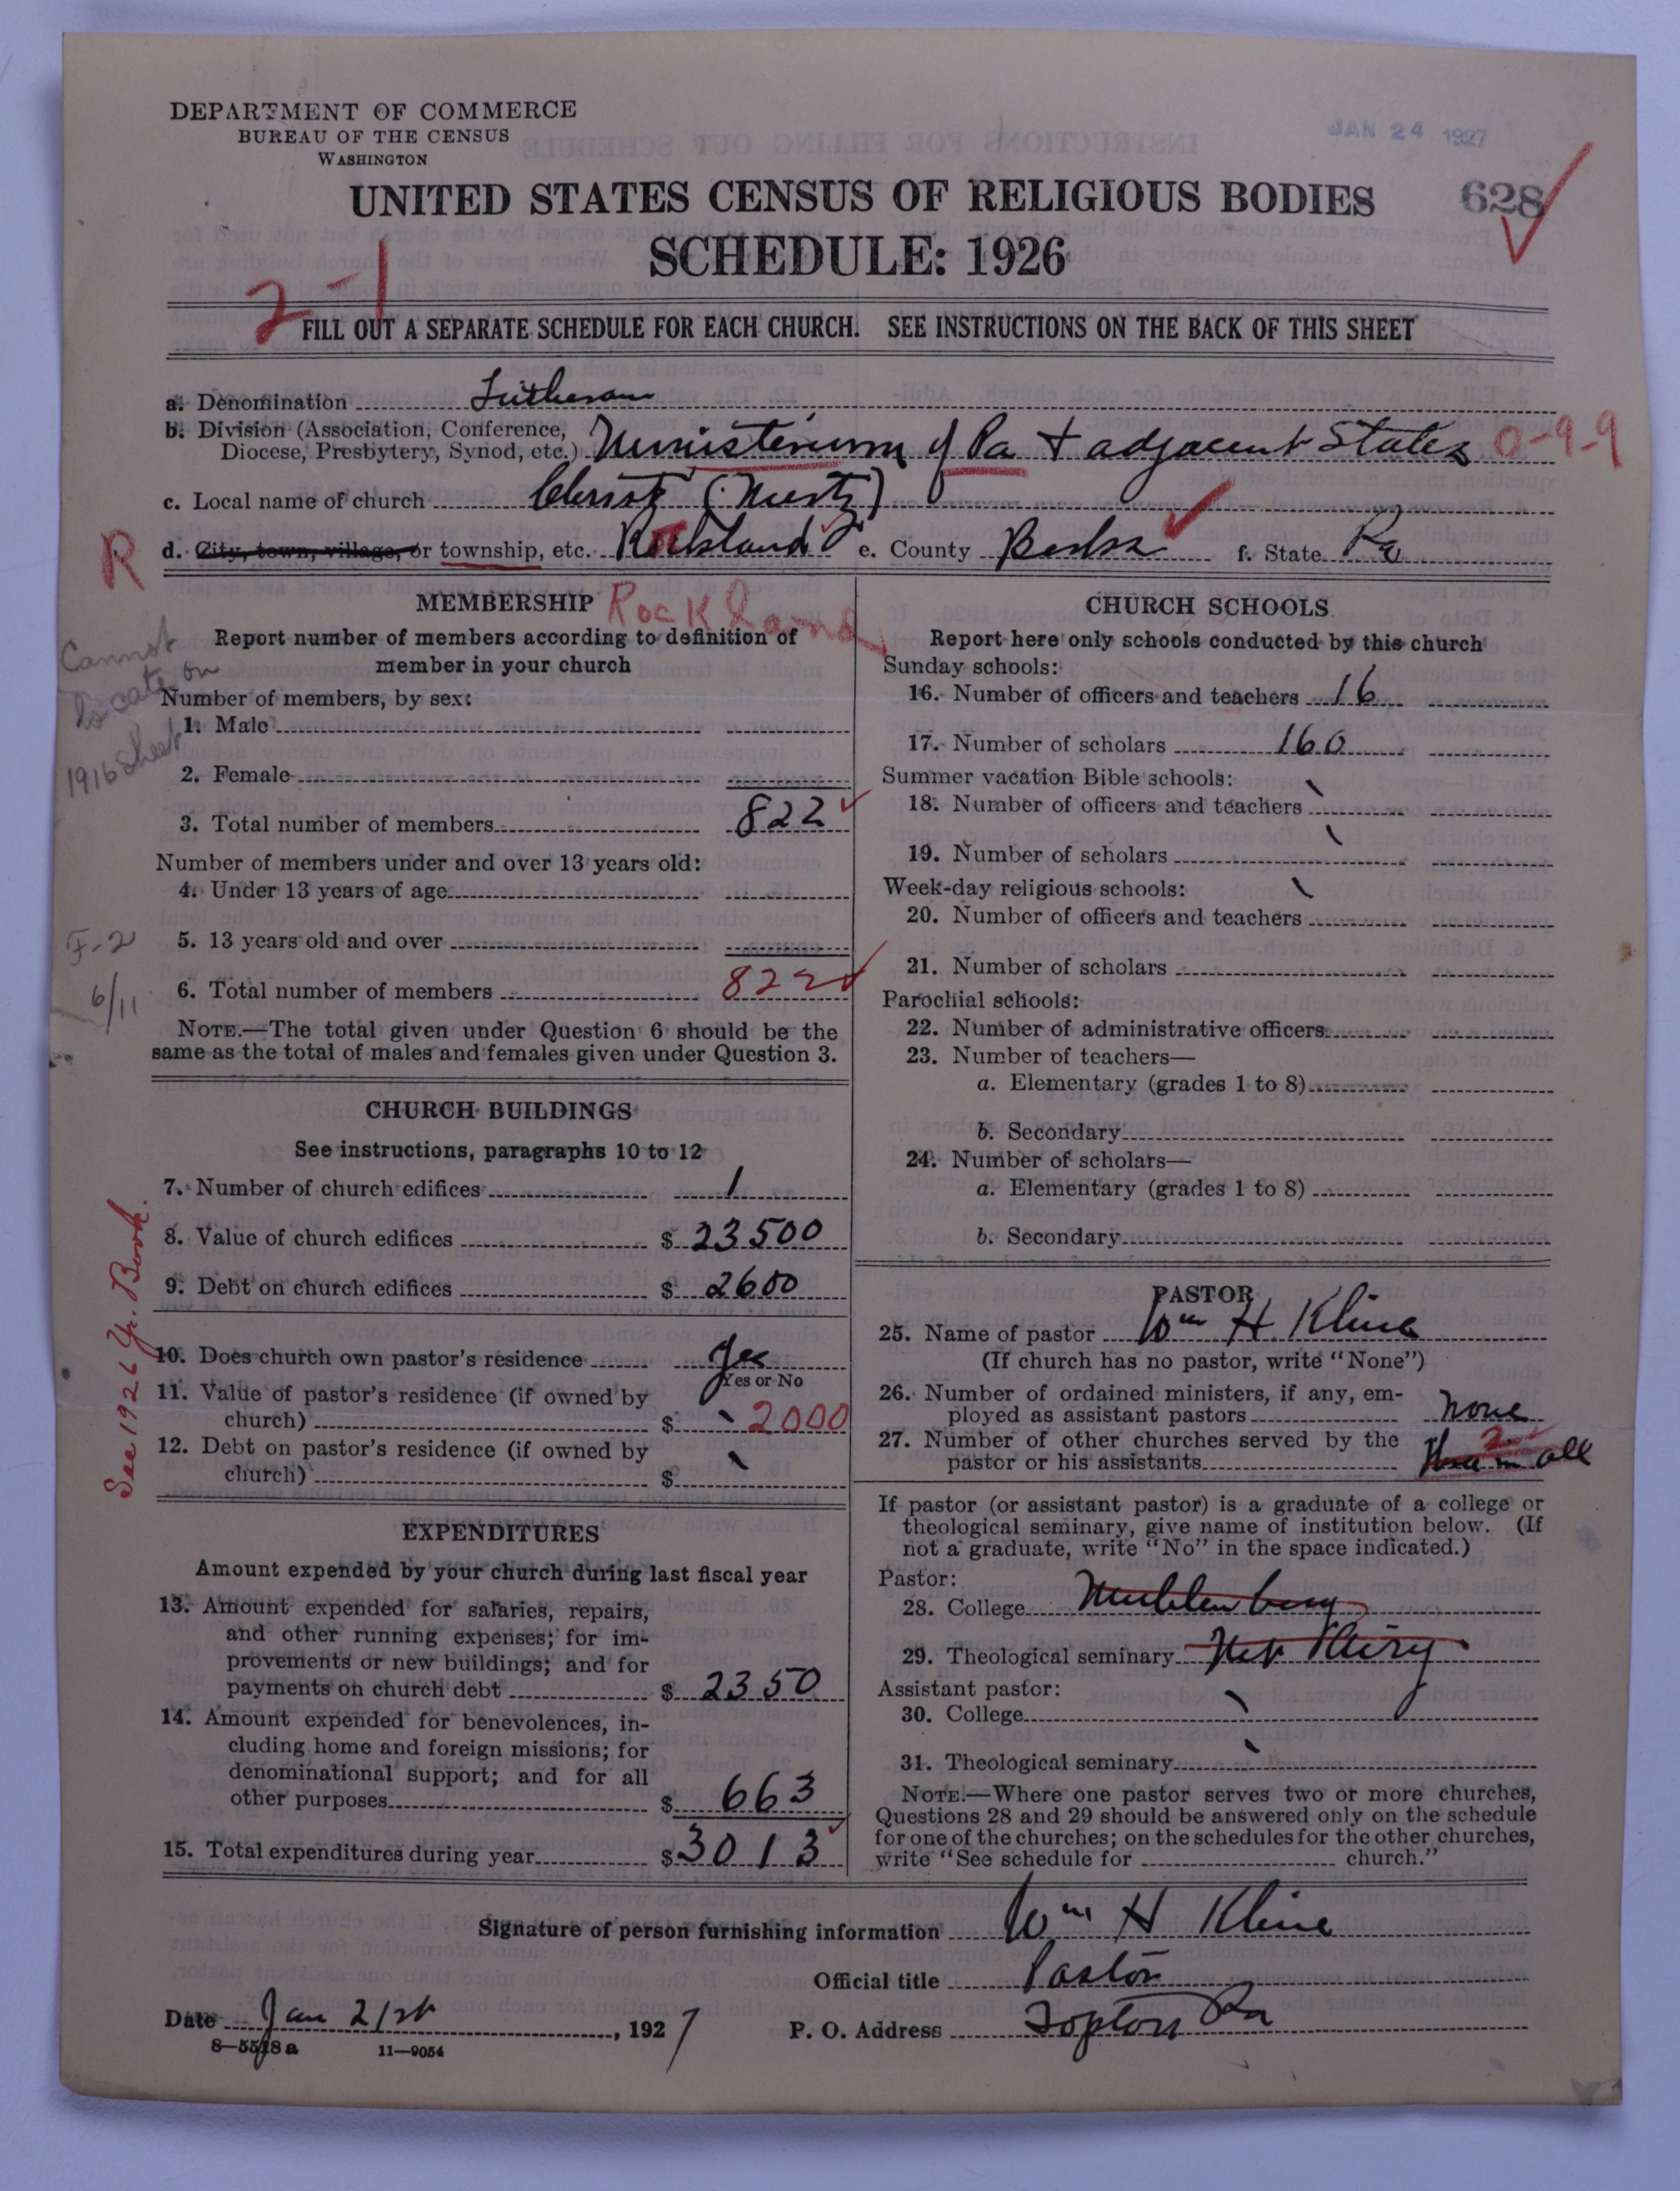 DEPARTMENT OF COMMERCE
BUREAU OF THE CENSUS
WASHINGTON
JAN 24 1927
UNITED STATES CENSUS OF RELIGIOUS BODIES
628
SCHEDULE: 1926
2-1
FILL OUT A SEPARATE SCHEDULE FOR EACH CHURCH. SEE INSTRUCTIONS ON THE BACK OF THIS SHEET
a. Denomination Lutheran
b. Division (Association, Conference, Diocese, Presbytery, Synod, etc.) Ministerium of Pa + adjacent States 0-9-9
c. Local name of church Christ (Mertz)
R d. City, town, village, or township, etc. Rockland e. County Berks f. State Pa
MEMBERSHIP Rockland
Report number of members according to definition of
member in your church
Cannot locate on 1916 sheet
Number of members, by sex:
1. Male
2. Female
3. Total number of members 822
Number of members under and over 13 years old:
4. Under 13 years of age
F-2
5. 13 years old and over
6/11
6. Total number of members 822
NOTE.—The total given under Question 6 should be the
same as the total of males and females given under Question 3.
CHURCH BUILDINGS
See instructions, paragraphs 10 to 12
7. Number of church edifices 1
8. Value of church edifices $ 23500
9. Debt on church edifices $ 2600
See 1926 Yr. Book.
10. Does church own pastor's residence Yes
Yes or No
11. Value of pastor's residence (if owned by
church) $ 2000
12. Debt on pastor's residence (if owned by
church) $
EXPENDITURES
Amount expended by your church during last fiscal year
13. Amount expended for salaries, repairs,
and other running expenses; for im-
provements or new buildings; and for
payments on church debt $ 2350
14. Amount expended for benevolences, in-
cluding home and foreign missions; for
denominational support; and for all
other purposes $ 663
15. Total expenditures during year $ 3013
CHURCH SCHOOLS
Report here only schools conducted by this church
Sunday schools:
16. Number of officers and teachers 16
17. Number of scholars 160
Summer vacation Bible schools:
18. Number of officers and teachers
19. Number of scholars
Week-day religious schools:
20. Number of officers and teachers
21. Number of scholars
Parochial schools:
22. Number of administrative officers
23. Number of teachers—
a. Elementary (grades 1 to 8)
b. Secondary
24. Number of scholars—
a. Elementary (grades 1 to 8)
b. Secondary
PASTOR
25. Name of pastor Wm H Kline
(If church has no pastor, write "None")
26. Number of ordained ministers, if any, em-
ployed as assistant pastors none
27. Number of other churches served by the
pastor or his assistants Three in all 2
If pastor (or assistant pastor) is a graduate of a college or
theological seminary, give name of institution below. (If
not a graduate, write "No" in the space indicated.)
Pastor:
28. College Muhlenburg
29. Theological seminary Mt Airy
Assistant pastor:
30. College
31. Theological seminary
NOTE.—Where one pastor serves two or more churches,
Questions 28 and 29 should be answered only on the schedule
for one of the churches; on the schedules for the other churches,
write "See schedule for church."
Signature of person furnishing information Wm H Kline
Official title Pastor
Date Jan 21st, 1927 P. O. Address Topton Pa
8—5518 a 11—9054